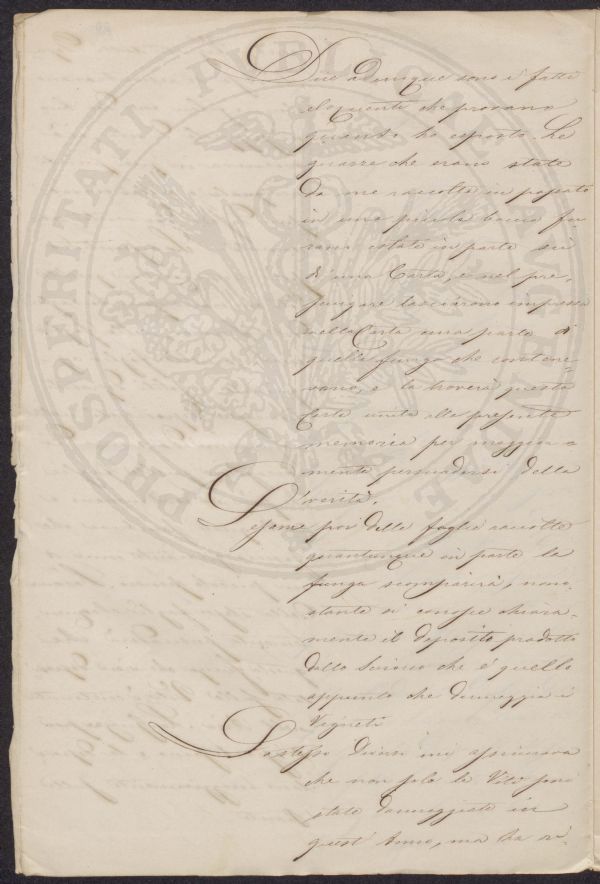 PROSPERITATI PUBLICAE AUGENDAE
Due adunque sono i fatti
eloquenti che provano
quanto ho esposto. Le
guazze che erano state
da me raccolte in passato
in una piccola boccia fu-
rono votate in parte su
d'una Carta, e nel pro-
sciugare lasciarono impressa
nella Carta una parte di
quella funga che contene-
vano, e la troverà questa
Carta unita alla presente
memoria per maggior-
mente persuadersi della
verità.
poi delle foglie raccolte
quantunque in parte la
funga scomparirà, nono-
stante si conosce chiara-
mente il deposito prodotto
dallo che è quello
appunto che danneggia i
Vigneti
Lo stesso mi assicurava
che non solo le Viti sono
state danneggiate in
quest'Anno, ma ha